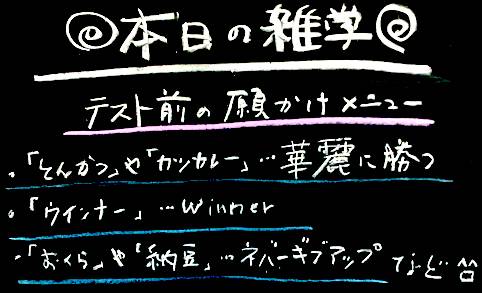 本日の雑学
テスト前の願かけメニュー
・「とんかつ」や「カツカレー」…華麗に勝つ
・「ウインナー」…Winner
・「おくら」や「納豆」…ネバーギブアップ など